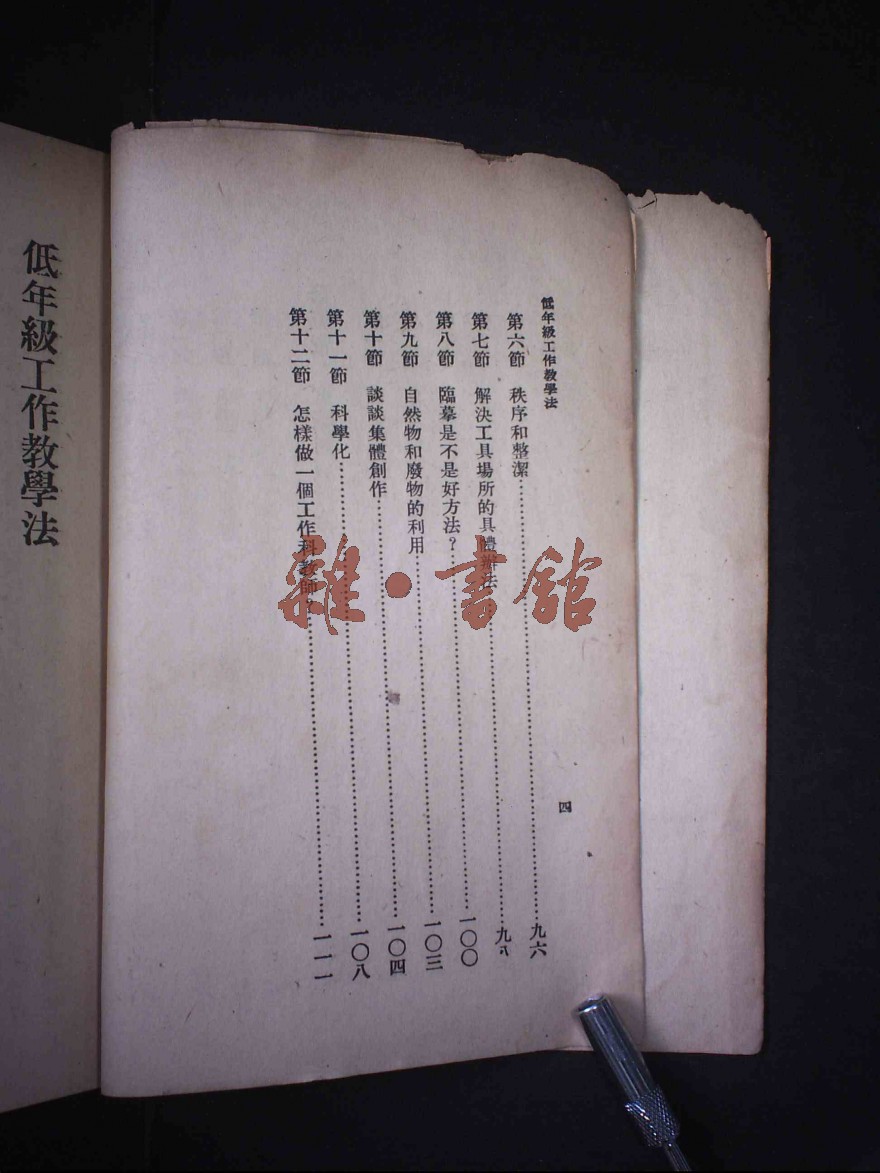 低年級工作教學法
第六節 秩序和整潔……九六
第七節 解決工具場所的具體辦法……九八
第八節 臨摹是不是好方法?……一〇〇
第九節 自然物和廢物的利用……一〇三
第十節 談談集體創作……一〇四
第十一節 科學化……一〇八
第十二節 怎樣做一個工作科教師?……一一一
四
低年級工作教學法
雜·書館